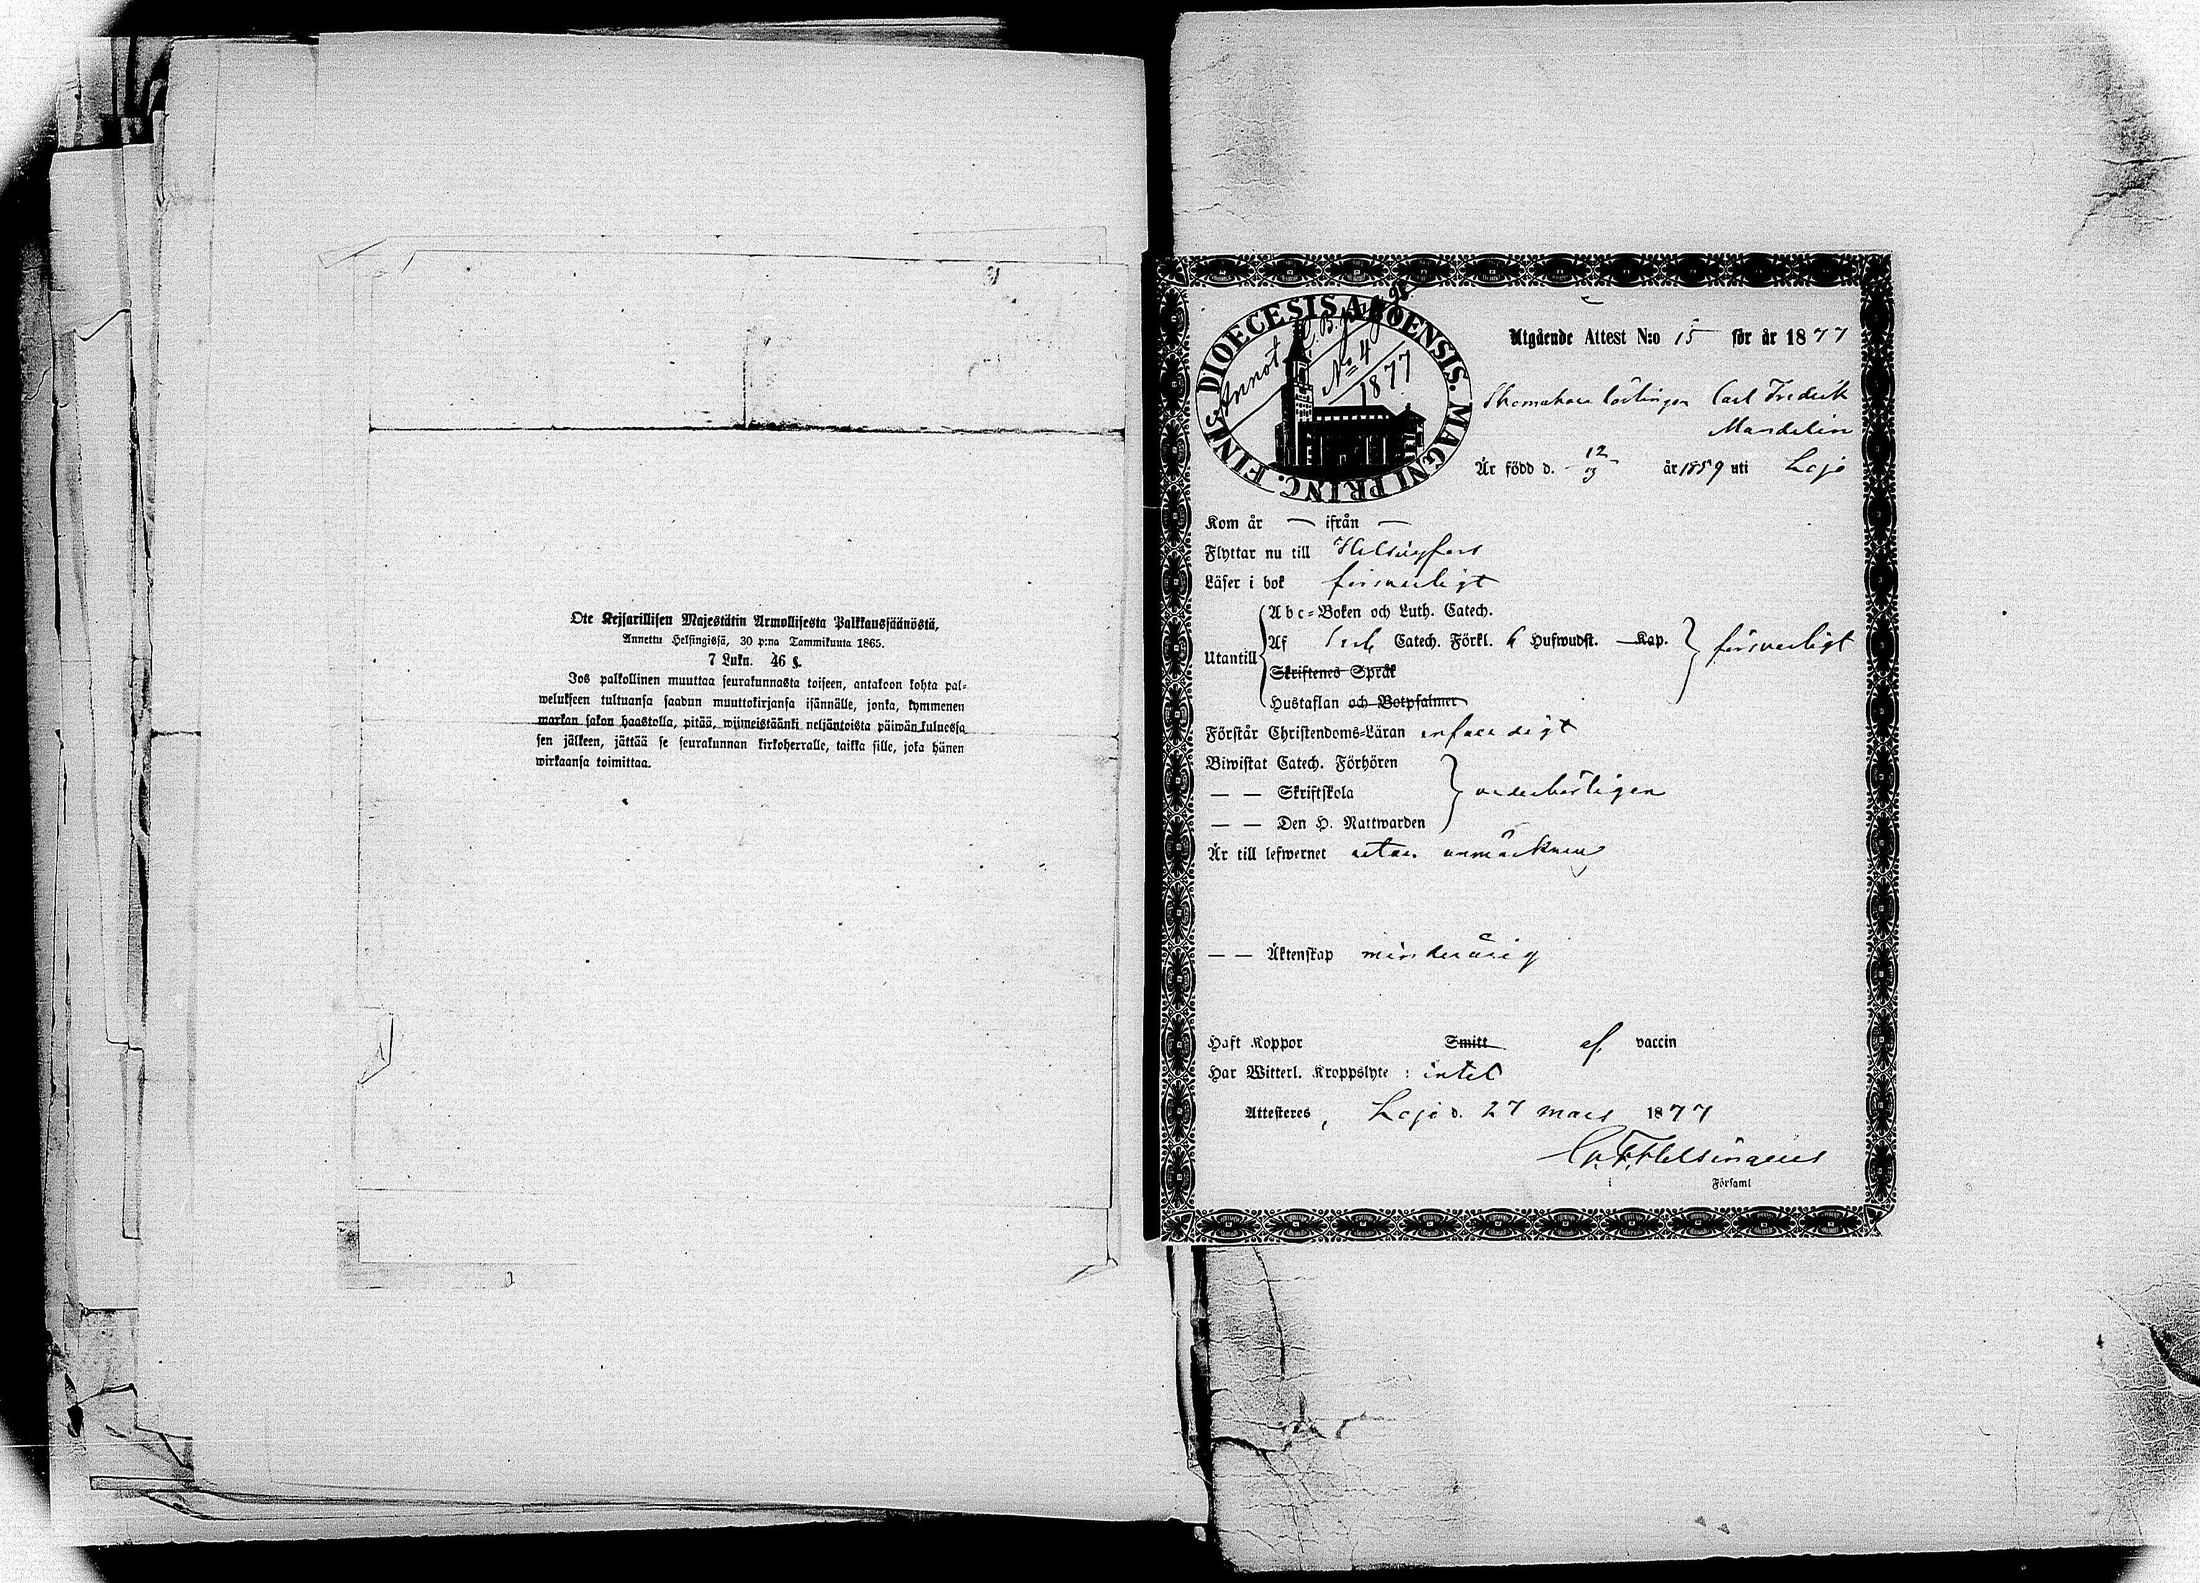 Ote Keisarillisen Majestätin Armollisesta Palkkaussäänöstä,
Annettu Helsingissä, 30 p:na Tammikuuta 1865.
7 Luku. 46 §.
Jos palkollinen muuttaa seurakunnasta toiseen, antakoon kohta pal-
welukseen tultuansa saadun muuttokirjansa isännälle, jonka, kymmenen
markan sakon haastolla, pitää, wiimeistäänki neljäntoista päiwän kuluessa
sen jälkeen, jättää se seurakunnan kirkoherralle, taikka sille, joka hänen
wirkaansa toimittaa.
DIOECESIS ABOENSIS. MAGNI PRINC. FINL.
Annot. C.B.
No 4
1877
Utgående Attest N:o 15 för år 1877
Skomakare lärlingen Carl Fredrik
Mandelin
Är född d. 12/3 år 1859 uti Lojo
Kom år — ifrån —
Flyttar nu till Helsingfors
Läser i bok försvarligt
Utantill
Abc-Boken och Luth. Catech.
Af Catech. Förkl. 6 Hufwudst. Kap. försvarligt
Skriftenes Språk
Hustaflan och Botpsalmer
Förstår Christendoms-Läran enfaldigt
Biwistat Catech. Förhören
— — Skriftskola vederbörligen
— — Den H. Nattwarden
Är till lefwernet utan anmärkning
— — Äktenskap minderårig
Haft Koppor Smitt af vaccin
Har Witterl. Kroppslyte : intet
Attesteres, Lojo d. 27 mars 1877
Helsingius
Församl